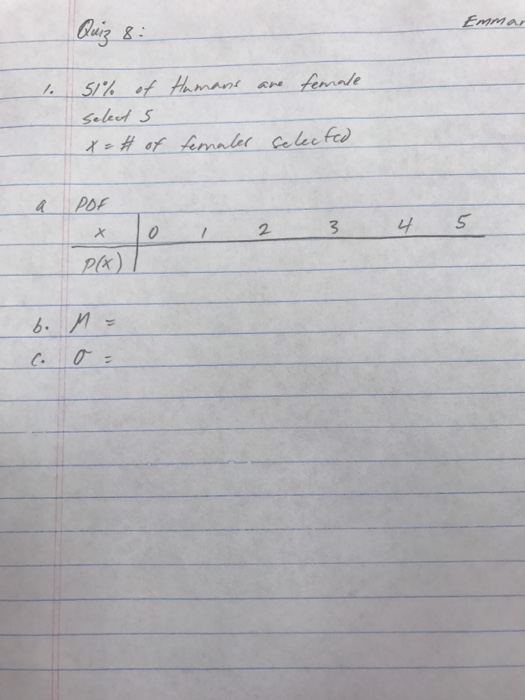 Quiz 8:
1. 51% of Humans are female
select 5
x = # of females selected
a PDF
x 0 1 2 3 4 5
P(x)
b. μ =
c. σ =